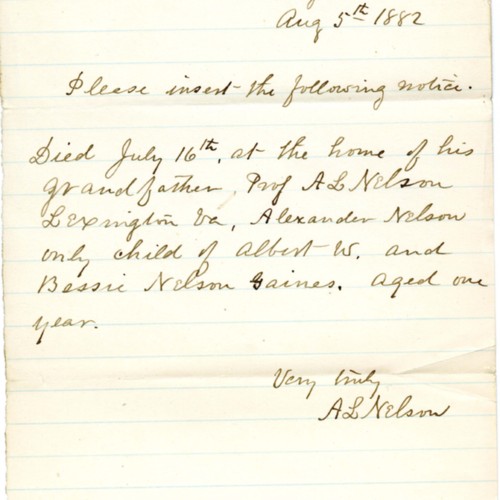 Aug 5th 1882
Please insert the following notice.
Died July 16th, at the home of his
grandfather, Prof A L Nelson
Lexington Va, Alexander Nelson
only child of Albert W. and
Bessie Nelson Gaines. Aged one
year.
Very truly
A L Nelson